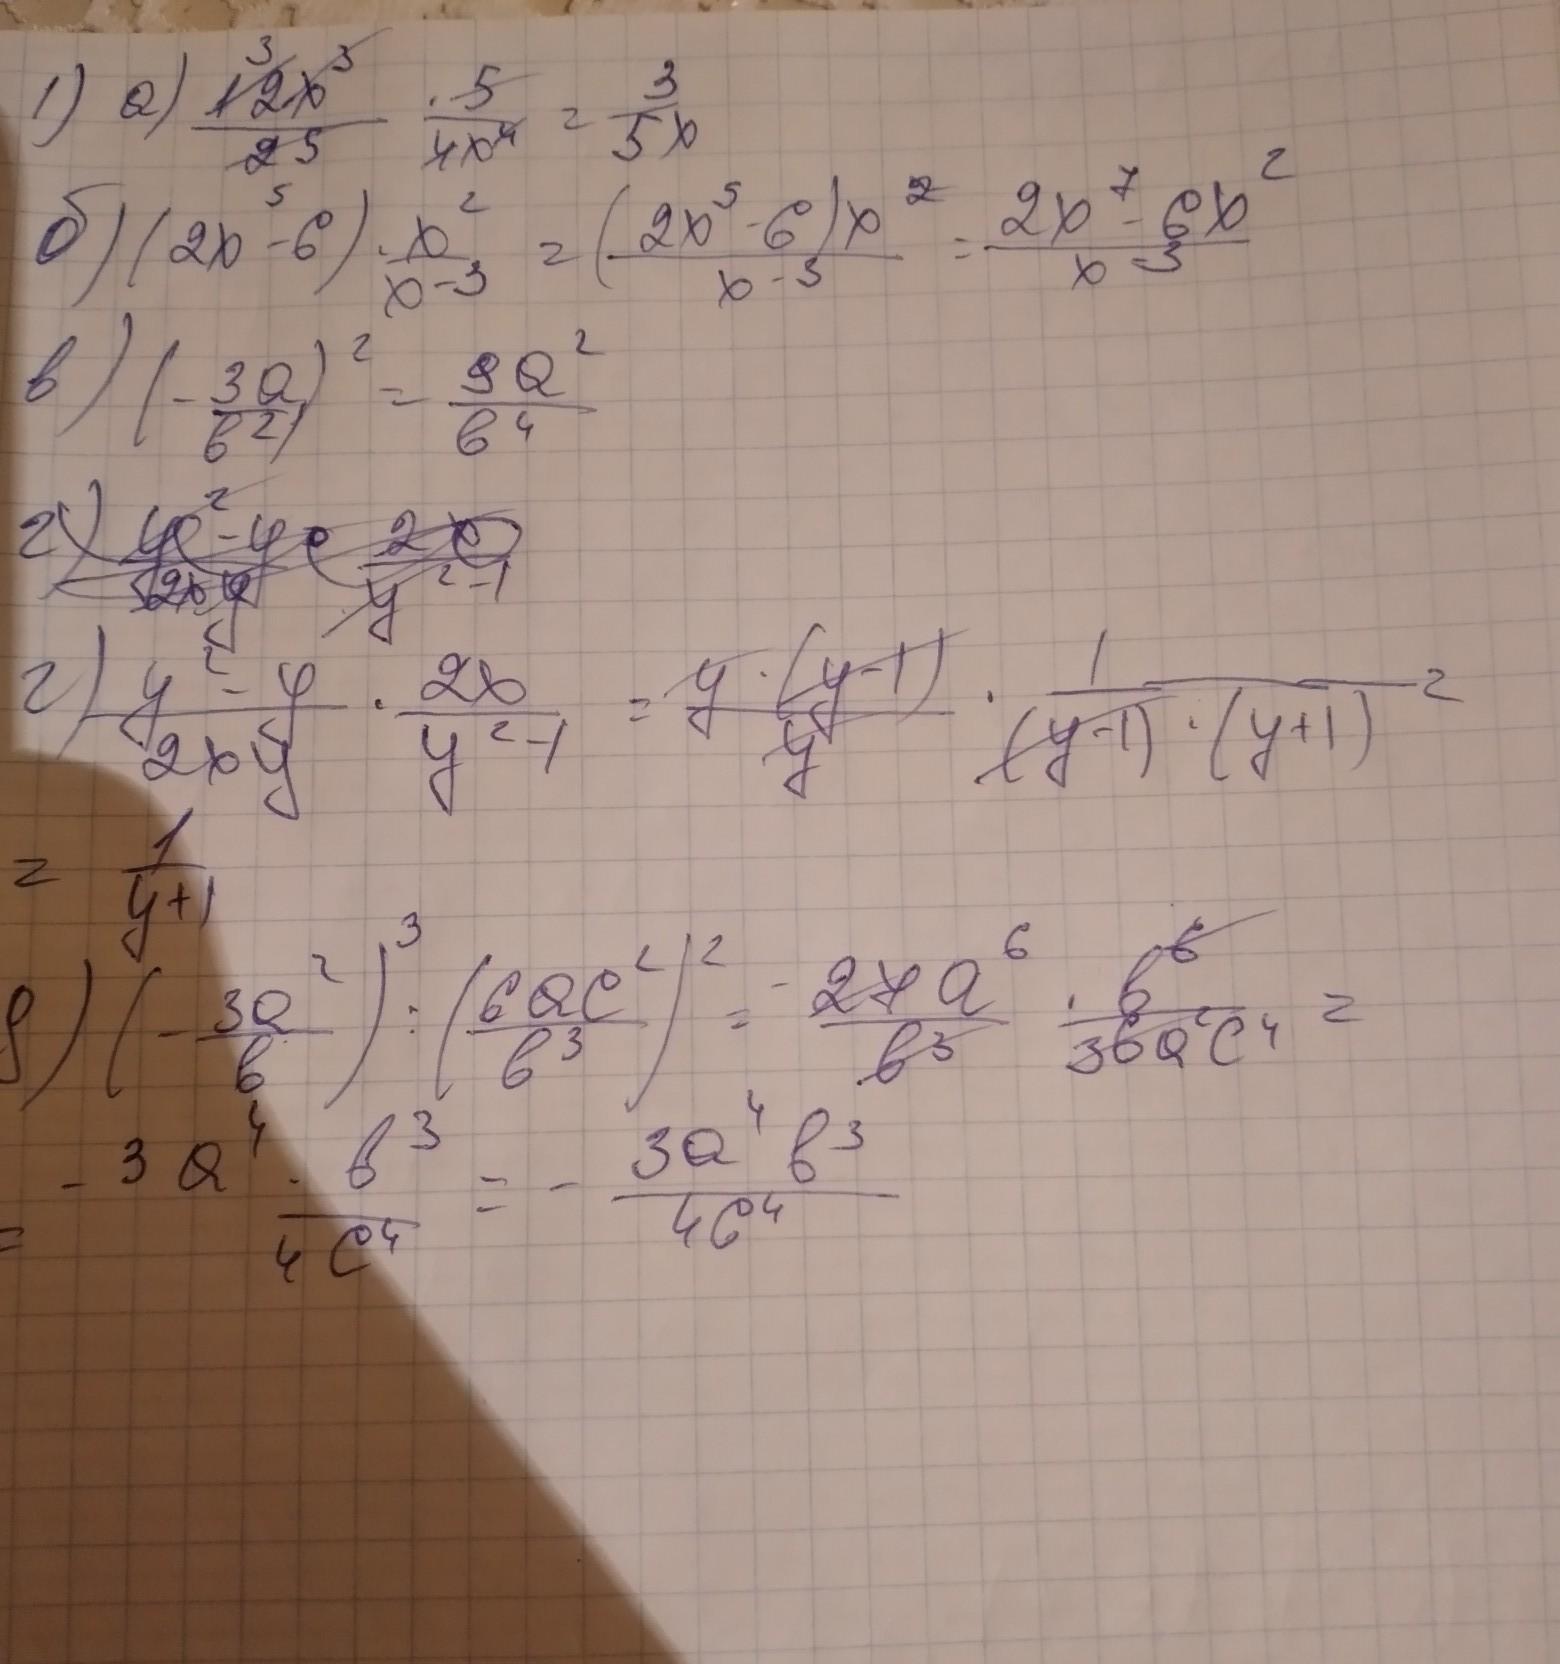 1) а) 12x³/25 · 5/4x⁴ = 3/5x
б) (2x⁵-6) · x²/x-3 = (2x⁵-6)x²/x-3 = 2x⁷-6x²/x-3
в) (-3a/b²)² = 9a²/b⁴
г) y²-y/2xy · 2x/y²-1
г) y²-y/2xy · 2x/y²-1 = y·(y-1)/y · 1/(y-1)·(y+1) =
= 1/y+1
д) (-3a²/b)³ : (6ac²/b³)² = -27a⁶/b³ · b⁶/36a²c⁴ =
= -3a⁴ · b³/4c⁴ = -3a⁴b³/4c⁴